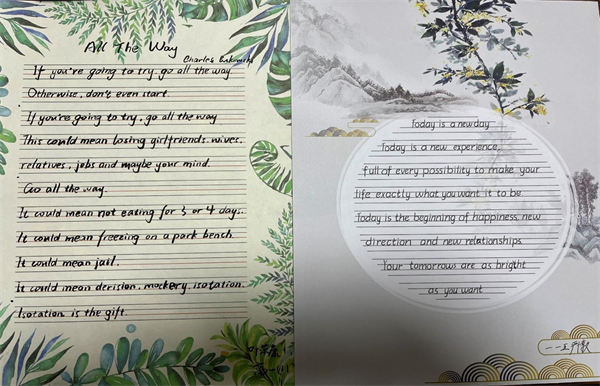 All The Way
Charles Bukowski
If you're going to try, go all the way.
Otherwise, don't even start.
If you're going to try, go all the way
This could mean losing girlfriends, wives,
relatives, jobs and maybe your mind.
Go all the way.
It could mean not eating for 3 or 4 days.
It could mean freezing on a park bench.
It could mean jail.
It could mean derision, mockery, isotation.
Isotation is the gift.
Today is a new day
Today is a new experience,
full of every possibility to make your
life exactly what you want it to be.
Today is the beginning of happiness, new
direction and new relationships
Your tomorrows are as bright
as you want